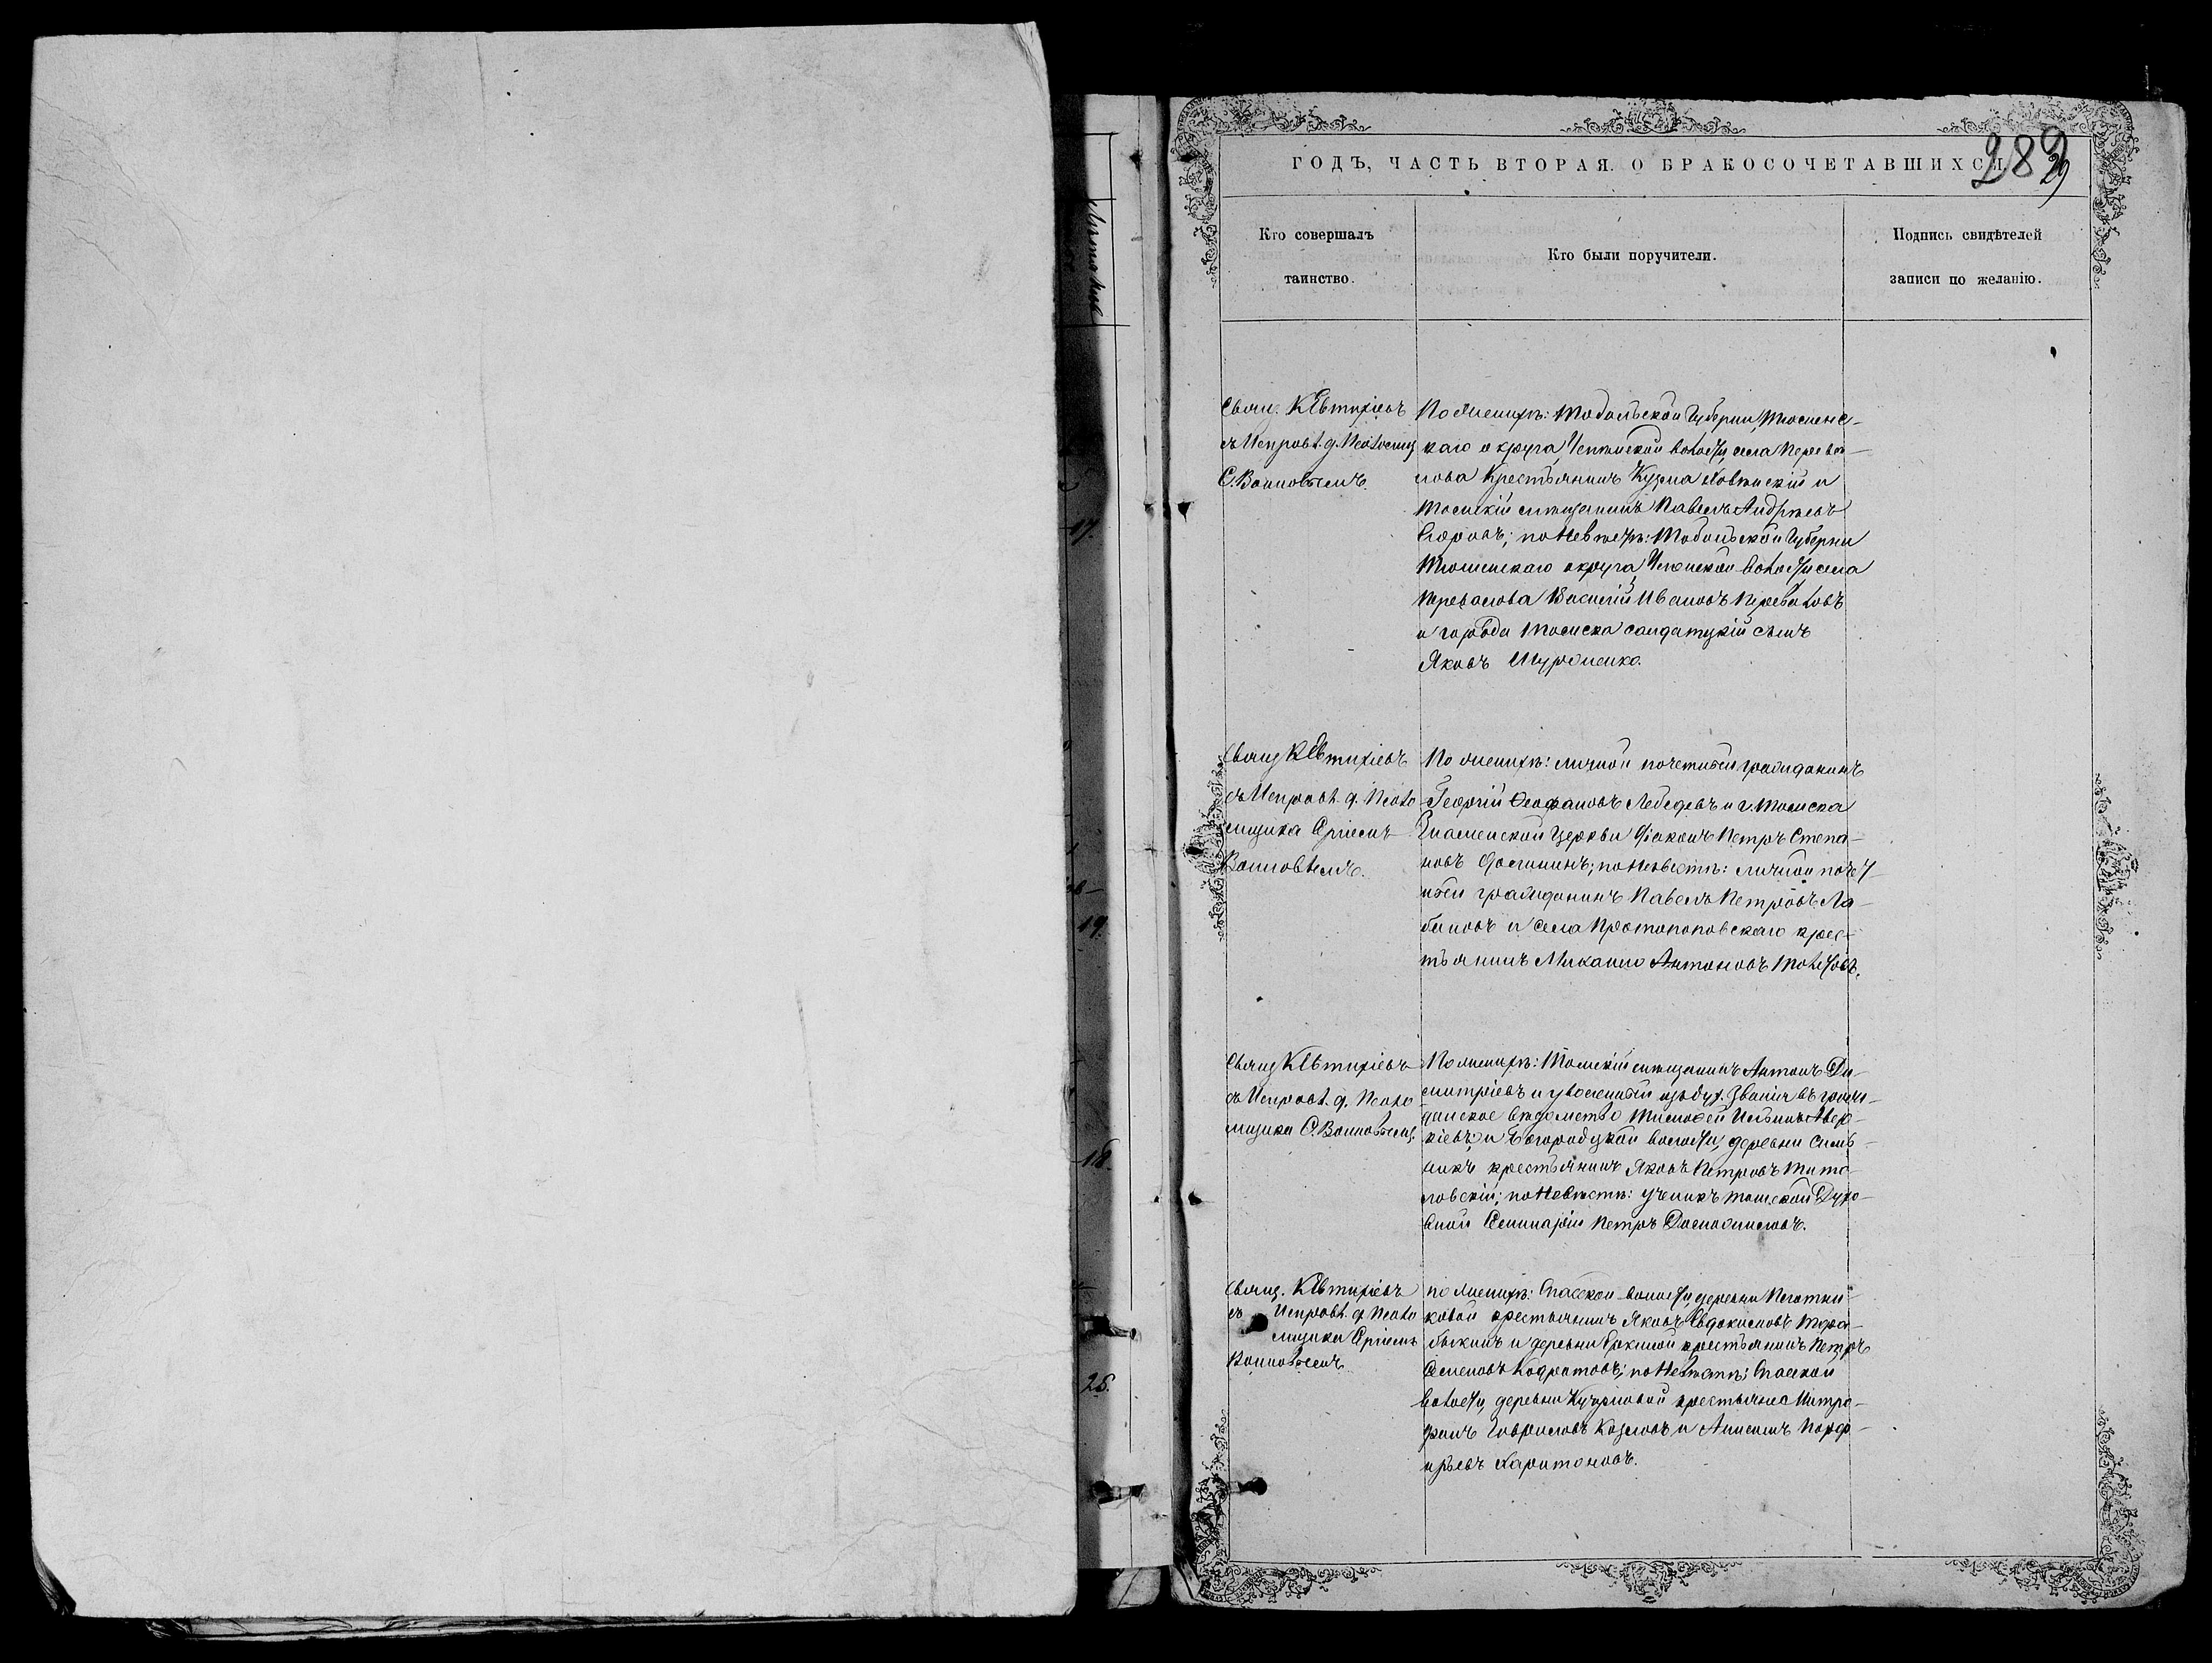 ГОДЪ, ЧАСТЬ ВТОРАЯ. О БРАКОСОЧЕТАВШИХСЯ
289
29
Кто совершалъ
таинство.
Кто были поручители.
Подпись свидѣтелей
записи по желанію.
17.
19.
18.
25.
Свящ. К Евтихіевъ
съ Исправл. д. Псаломщ
С. Воиновымъ.
По женихѣ: Тобольской Губерніи, Тюменс-
каго округа, волости, села Перева-
лова Крестьянинъ Кузма и
Томскій мѣщанинъ Павелъ Андреевъ
по невѣстѣ: Тобольской Губерніи
Тюменскаго округа, волости села
Перевалова Василій Ивановъ Переваловъ
и города Томска салдатскій сынъ
Яковъ
Свящ К Евтихіевъ
съ Исправл. д. Псало
мщика Сергіемъ
Воиновымъ.
По женихѣ: личный почетный гражданинъ
Георгій Феофановъ Лебедевъ и г. Томска
Знаменской Церкви Діаконъ Петръ Степа-
новъ по невѣстѣ: личный почет
ный гражданинъ Павелъ Петровъ Ла-
биновъ и села Протопоповскаго крес-
тьянинъ Михаилъ Антоновъ
Свящ К Евтихіевъ
съ Исправл. д. Псало
мщика С. Воиновымъ.
По женихѣ: Томскій мѣщанинъ Антонъ Ди-
митріевъ и уволенный изъ дух. званія въ граж-
данское вѣдомство Тимофей Ильинъ Авер-
кіевъ; и Богородской волости, деревни
крестьянинъ Яковъ Петровъ Тито
ловскій; по невѣстѣ: ученикъ Томской Духо-
вной Семинаріи Петръ
Свящ. К Евтихіевъ
съ Исправл. д Псало
мщика Сергіемъ
Воиновымъ
по женихѣ: Спасской волости, деревни
крестьянинъ Яковъ Евдокимовъ Тара-
быкинъ и деревни крестьянинъ Петръ
Семеновъ по невѣстѣ: Спасской
волости, деревни крестьяне Митро-
фанъ Гавриловъ Козловъ и Анисимъ Порф-
ирьевъ Харитоновъ.